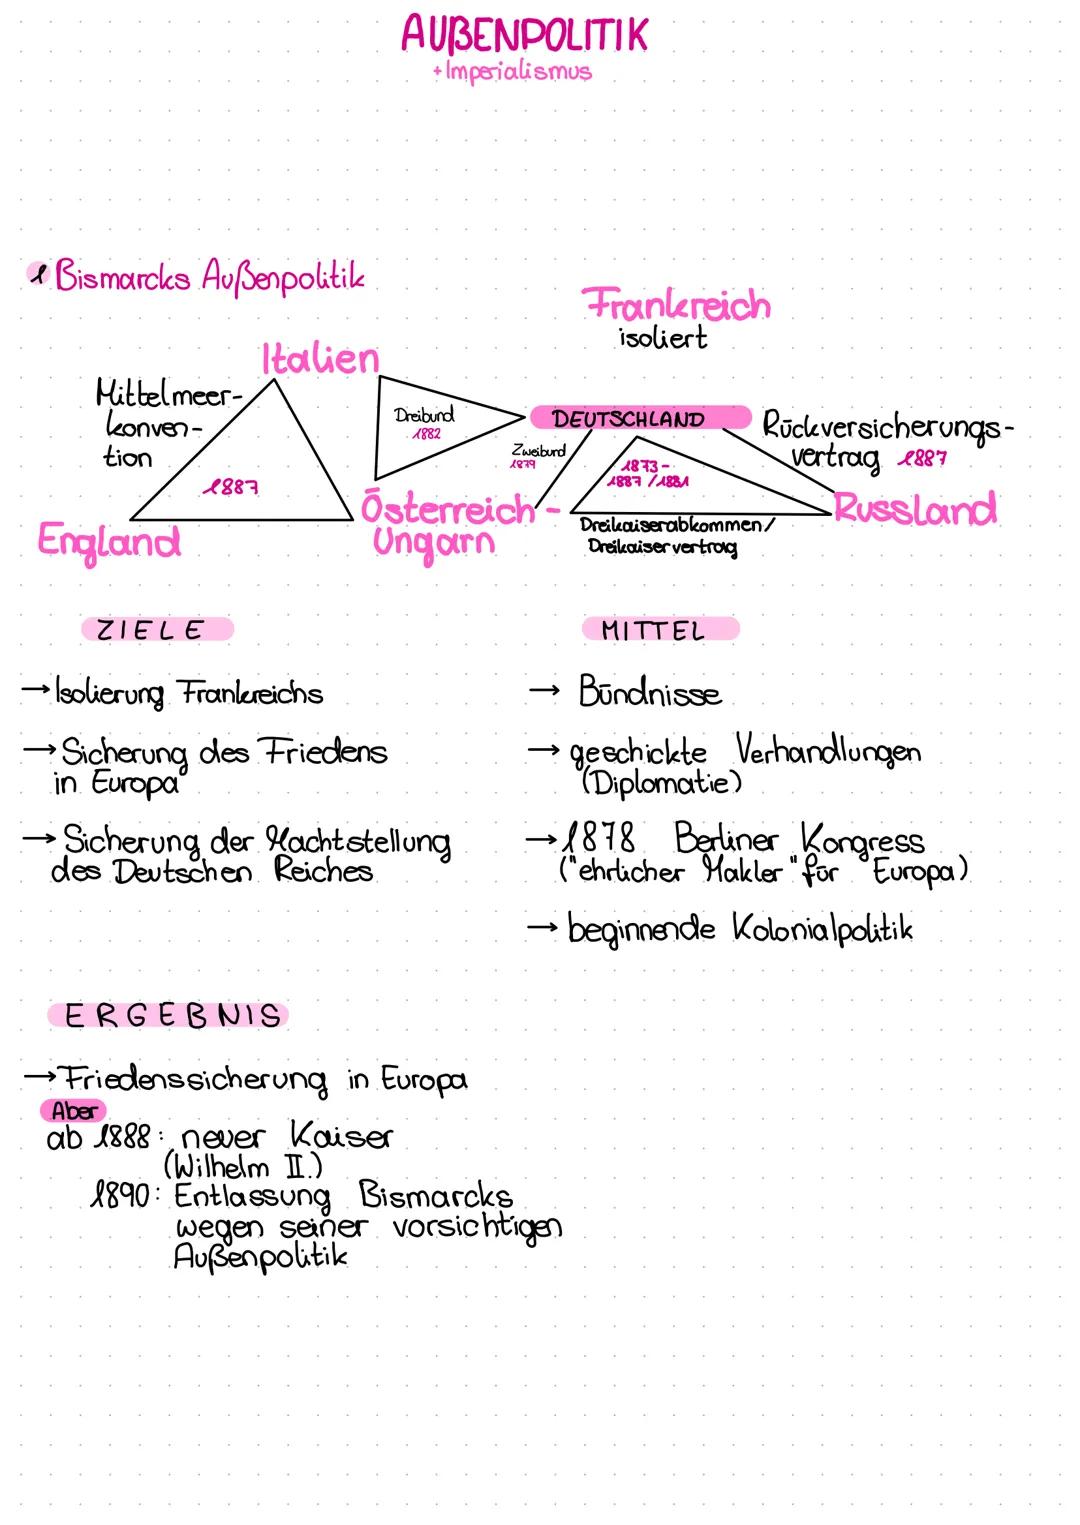 AUßENPOLITIK
+Imperialismus
1 Bismarcks Außenpolitik
Frankreich
isoliert
Italien
Mittelmeer-
konven-
tion
1887
England
Dreibund
1882
DEUTSCHLAND
Zweibund
1879
Rückversicherungs-
vertrag 1887
1873-
1887 / 1881
Österreich-
Ungarn
Russland
Dreikaiserabkommen/
Dreikaiservertrag
ZIELE
→ Isolierung Frankreichs
→ Sicherung des Friedens
in Europa
→ Sicherung der Machtstellung
des Deutschen Reiches
MITTEL
→ Bündnisse
→ geschickte Verhandlungen
(Diplomatie)
→ 1878 Berliner Kongress
("ehrlicher Makler" für Europa)
→ beginnende Kolonialpolitik
ERGEBNIS
→ Friedenssicherung in Europa
Aber
ab 1888: neuer Kaiser
(Wilhelm II.)
1890: Entlassung Bismarcks
wegen seiner vorsichtigen
Außenpolitik